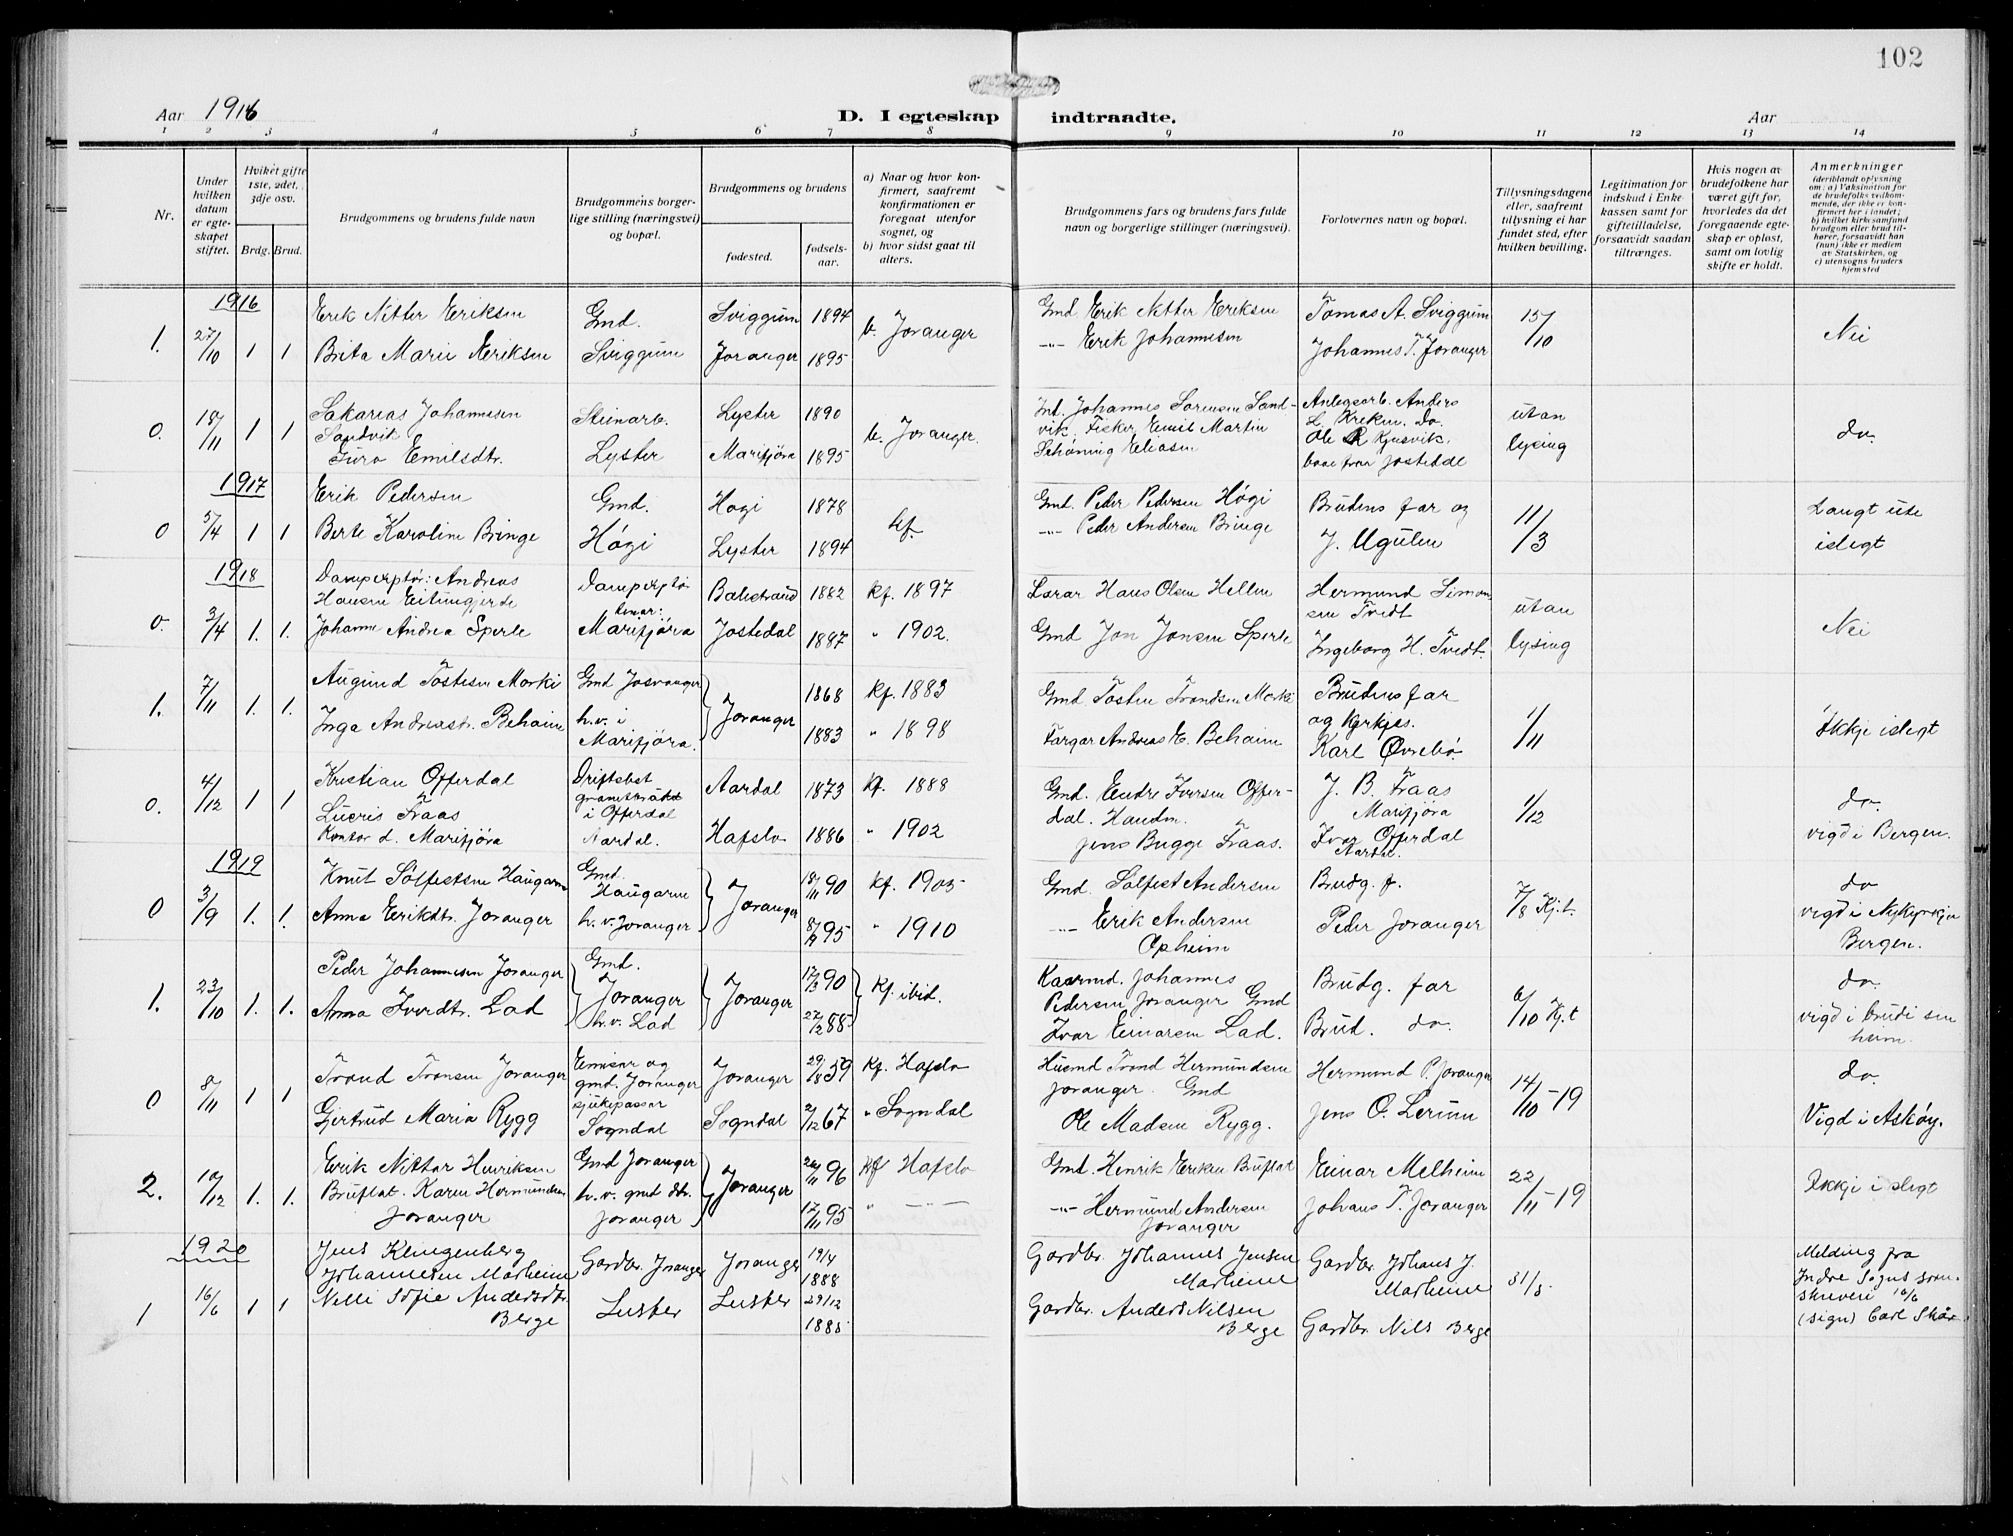 102
Aar 1916
D. I egteskap indtraadte.
Aar
1 2 3 4 5 6 7 8 9 10 11 12 13 14
Nr.
Under hvilken datum er egteskapet stiftet.
Hvilket gifte 1ste, 2det, 3dje osv.
Brdg. Brud.
Brudgommens og brudens fulde navn
Brudgommens borgerlige stilling (næringsvei) og bopæl.
Brudgommens og brudens
fødested.
fødselsaar.
a) Naar og hvor konfirmert, saafremt konfirmationen er foregaat utenfor sognet, og
b) hvor sidst gaat til alters.
Brudgommens fars og brudens fars fulde navn og borgerlige stillinger (næringsvei).
Forlovernes navn og bopæl.
Tillysningsdagene eller, saafremt tillysning ei har fundet sted, efter hvilken bevilling.
Legitimation for indskud i Enkekassen samt for giftetilladelse, forsaavidt saadan tiltrænges.
Hvis nogen av brudefolkene har været gift før, hvorledes da det foregaaende egteskap er opløst, samt om lovlig skifte er holdt.
Anmerkninger
(deriblandt oplysning om: a) Vaksination for de brudefolks vedkommende, der ikke er konfirmert her i landet; b) hvilket kirkesamfund brudgom eller brud tilhører, forsaavidt han (hun) ikke er medlem av Statskirken, og c) utensogns bruders hjemsted
1916
1. 27/10 1 1 Erik Nitter Eriksen Gmd. Sviggum 1894 b. Joranger Gmd Erik Nitter Eriksen Tomas A. Sviggum 15/10 Nei
Brita Marie Eriksen Sviggum Joranger 1895 -"- Erik Johannesen Johannes T. Joranger
0. 18/11 1 1 Sakarias Johannesen Steinarb. Lyster 1890 b. Joranger. Int. Johannes Sørensen Sand- Anlegsarb. Anders utan do.
Sandvik vik. Fisker Emil Martin L. Kreken. Do.
Guro Emilsdtr. Lyster Marifjøra 1895 Schøning Eliasen Ole R Kjusvik. lysing
1917
0 5/4 1 1 Erik Pedersen Gmd. Høgi 1878 kf. Gmd. Peder Pedersen Høgi Brudens far og 11/3 Langt ute
Berte Karoline Bringe Høgi Lyster 1894 -"- Peder Andersen Bringe J. Ugulen islegt
1918
0. 3/4 1. 1. Dampexpedtør: Andreas Balestrand 1882 kf. 1897 Lærar Hans Olsen Hellen Hermund Simon utan Nei
Hansen Eitungjerde sen Tvedt
Johanne Andrea Sperle Marifjøra Jostedal 1887 " 1902. Gmd Jon Jonsen Sperle Ingeborg H. Tvedt. lysing
1. 7/11 1. 1. Augund Tostesen Morki Gmd Joranger Joranger 1868 kf. 1883 Gmd Tosten Trondsen Morki Brudens far 1/11 Ikkje islegt
Inga Andreasdtr. Beheim h.v. i 1883 " 1898 Fargar Andreas E. Beheim og Kyrkjes.
Marifjøra. Karl Øvrebø.
0. 4/12 1 1 Kristian Offerdal Driftsbst Aardal 1873 kf. 1888 Gmd. Endre Iversen Offer- J. B. Fraas 1/12 do.
Lucris Fraas i Offerdal dal. Handm. Marifjøra
Kontor d. Marifjøra Aardal. Hafslo 1886 " 1902 Jens Bugge Fraas. Ivar Offerdal vigd i Bergen.
Aardal.
1919
0 3/9 1. 1. Knut Solfestsen Haugarne Gmd. Haugarne Joranger 18/11 90 kf. 1905 Gmd. Solfest Andersen Brudg. f. 7/8 Kj.t. do
Anna Eriksdtr. Joranger h.v. Joranger 8/9 95 " 1910 -"- Erik Andersen Peder Joranger vigd i Nykyrkja
Opheim Bergen.
1. 23/10 1. 1. Peder Johannesen Joranger Gmd. Joranger Joranger 17/3 90 kf. ibid. Kaarmd. Johannes Brudg. far 6/10 Kj.t do.
Anna Iversdtr. Lad h.v. Lad 27/2 88 Pedersen Joranger Gmd vigd i brudi sin
Ivar Einarsen Lad. Brud. do. heim.
0 8/11 1 1 Trond Tronsen Joranger Emissær og gmd. Joranger Joranger 29/8 59 kf. Hafslo Husmd Trond Hermundsen Hermund P. Joranger 14/10-19 do.
Gjertrud Maria Rygg sjukepassar Sogndal Sogndal 2/12 67 " Sogndal Joranger. Gmd Jens O. Lerum Vigd i Askøy.
Ole Madsen Rygg.
2. 10/12 1. 1. Erik Nitter Henriksen Gmd Joranger Joranger 26/11 96 kf Hafslo Gmd. Henrik Eriksen Bruflat Einar Melheim 22/11-19 Ikkje i slegt
Bruflat. Karen Hermundsen h.v. gmd dtr. 17/11 95 " — " — -"- Hermund Andersen Johans T. Joranger
Joranger Joranger Joranger
1920
1 16/6 1 1 Jens Klingenberg Gardbr. Joranger Joranger 19/4 1888 Gardbr. Johannes Jensen Gardbr. Johans J. 31/5. Melding fra
Johannesen Marheim Marheim Marheim Indre Sogns soren-
Nelli Sofie Andersdtr. Luster Luster 29/12 1885 Gardbr. Anders Nilsen skriveri 16/6
Berge Berge Gardbr. Nils Berge (sign) Carl Skår.